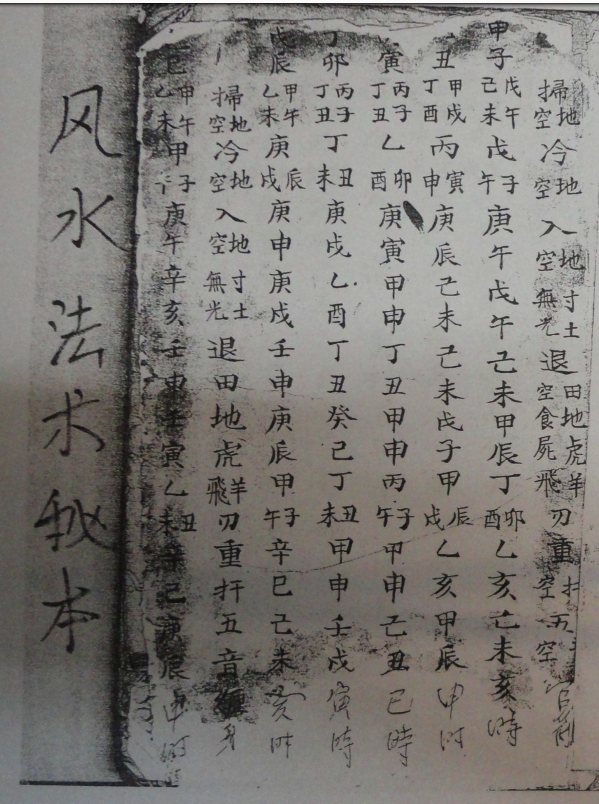 掃地空冷地空入地空寸土無光退田地空食屍虎羊飛刃重扦空五空
甲子戊午己未戊子午庚午戊午己未甲辰丁卯酉乙亥己未亥時
丑甲戌丁酉丙寅申庚辰己未己未戊子甲辰戌乙亥甲辰申时
寅丙子丁丑乙卯酉庚寅甲申丁丑甲申丙子午甲申己丑巳時
丁卯丙子丁丑丁丑未庚戌乙酉丁丑癸巳丁丑未甲申壬戌寅時
戊辰甲午乙未庚辰戌庚申庚戌壬申庚辰甲子午辛巳己未亥时
掃地空冷地空入地空寸土無光退田地虎羊飛刃重扦五音纏身
巳甲午乙未甲子庚午辛亥壬申壬寅乙丑未辛巳庚辰申时
风水法术秘本